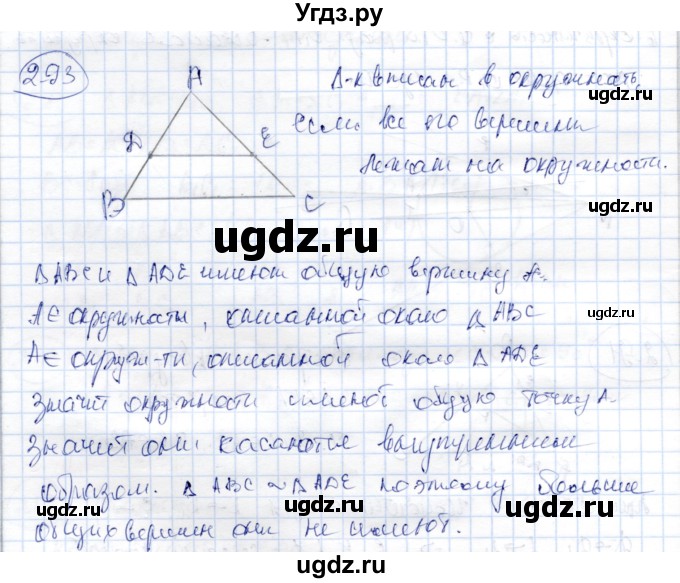 Угдз.ру
293
A
Δ-к вписан в окружность,
ugdz.ru
D
E
если все его вершины
ugdz.ru
лежат на окружности.
B
C
ugdz.ru
ugdz.ru
ΔABC и ΔADE имеют общую вершину A.
A∈ окружности, описанной около ΔABC
ugdz.ru
A∈ окруж-ти, описанной около ΔADE
ugdz.ru
Значит окружности имеют общую точку A.
ugdz.ru
Значит они касаются внутренним
ugdz.ru
образом. ΔABC ~ ΔADE поэтому больше
ugdz.ru
ugdz.ru
общих вершин они не имеют.
ugdz.ru